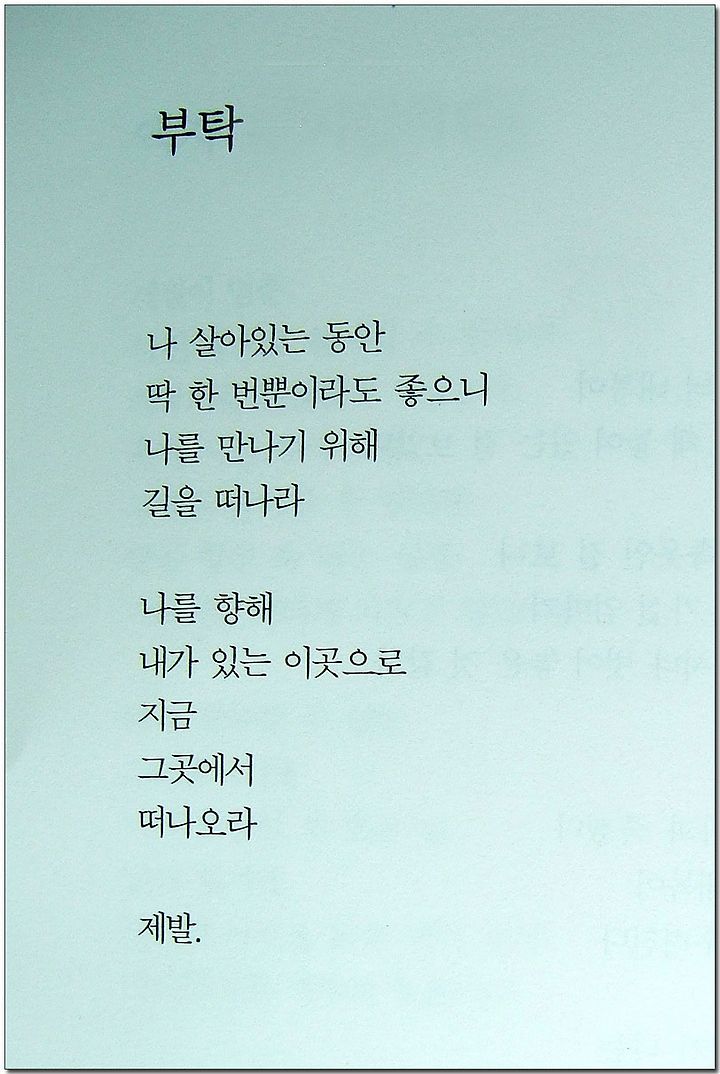 부탁
나 살아있는 동안
딱 한 번뿐이라도 좋으니
나를 만나기 위해
길을 떠나라
나를 향해
내가 있는 이곳으로
지금
그곳에서
떠나오라
제발.